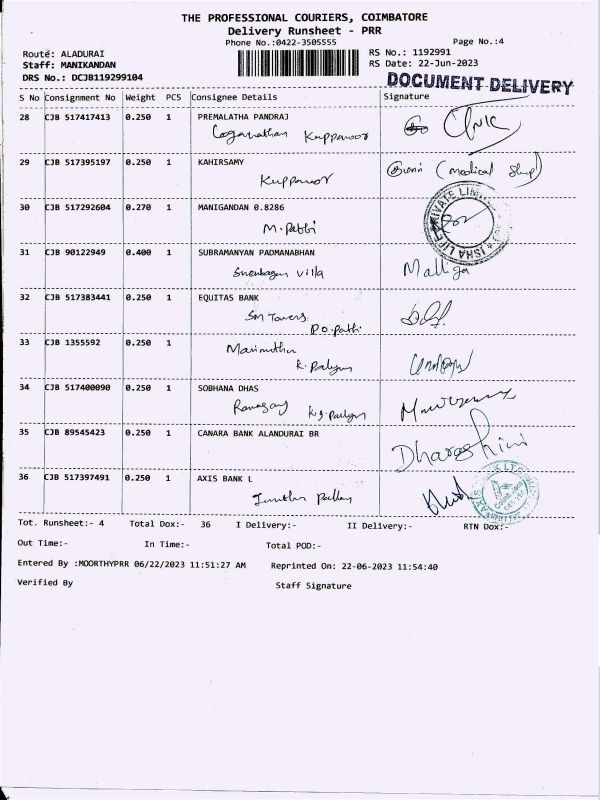 THE PROFESSIONAL COURIERS, COIMBATORE
Delivery Runsheet - PRR
Phone No.:0422-3505555
Page No.:4
Route: ALADURAI
RS No.: 1192991
Staff: MANIKANDAN
RS Date: 22-Jun-2023
DRS No.: DCJB119299104
DOCUMENT DELIVERY
S No Consignment No Weight PCS Consignee Details Signature
28 CJB 517417413 0.250 1 PREMALATHA PANDRAJ
Loganathan Kuppanoor
29 CJB 517395197 0.250 1 KAHIRSAMY
(medical shop)
Kuppanoor
30 CJB 517292604 0.270 1 MANIGANDAN 0.8286
PRIVATE LIMITED
ISHA LIFE
M. Patti
31 CJB 90122949 0.400 1 SUBRAMANYAN PADMANABHAN
villa
Malliga
32 CJB 517383441 0.250 1 EQUITAS BANK
SM Towers
33 CJB 1355592 0.250 1
Marimuthu
34 CJB 517400090 0.250 1 SOBHANA DHAS
35 CJB 89545423 0.250 1 CANARA BANK ALANDURAI BR
Dharashini
36 CJB 517397491 0.250 1 AXIS BANK L
Tot. Runsheet:- 4 Total Dox:- 36 I Delivery:- II Delivery:- RTN Dox:-
Out Time:- In Time:- Total POD:-
Entered By :MOORTHYPRR 06/22/2023 11:51:27 AM Reprinted On: 22-06-2023 11:54:40
Verified By Staff Signature